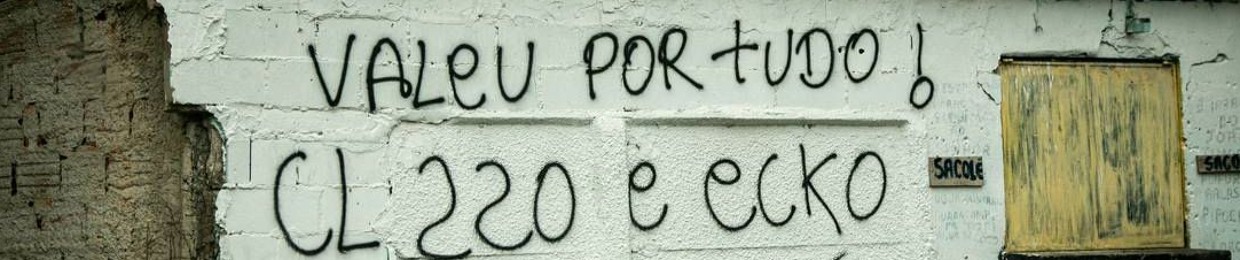 VALEU POR TUDO!
CL 220 e ECKO
SACOLÉ
SACO